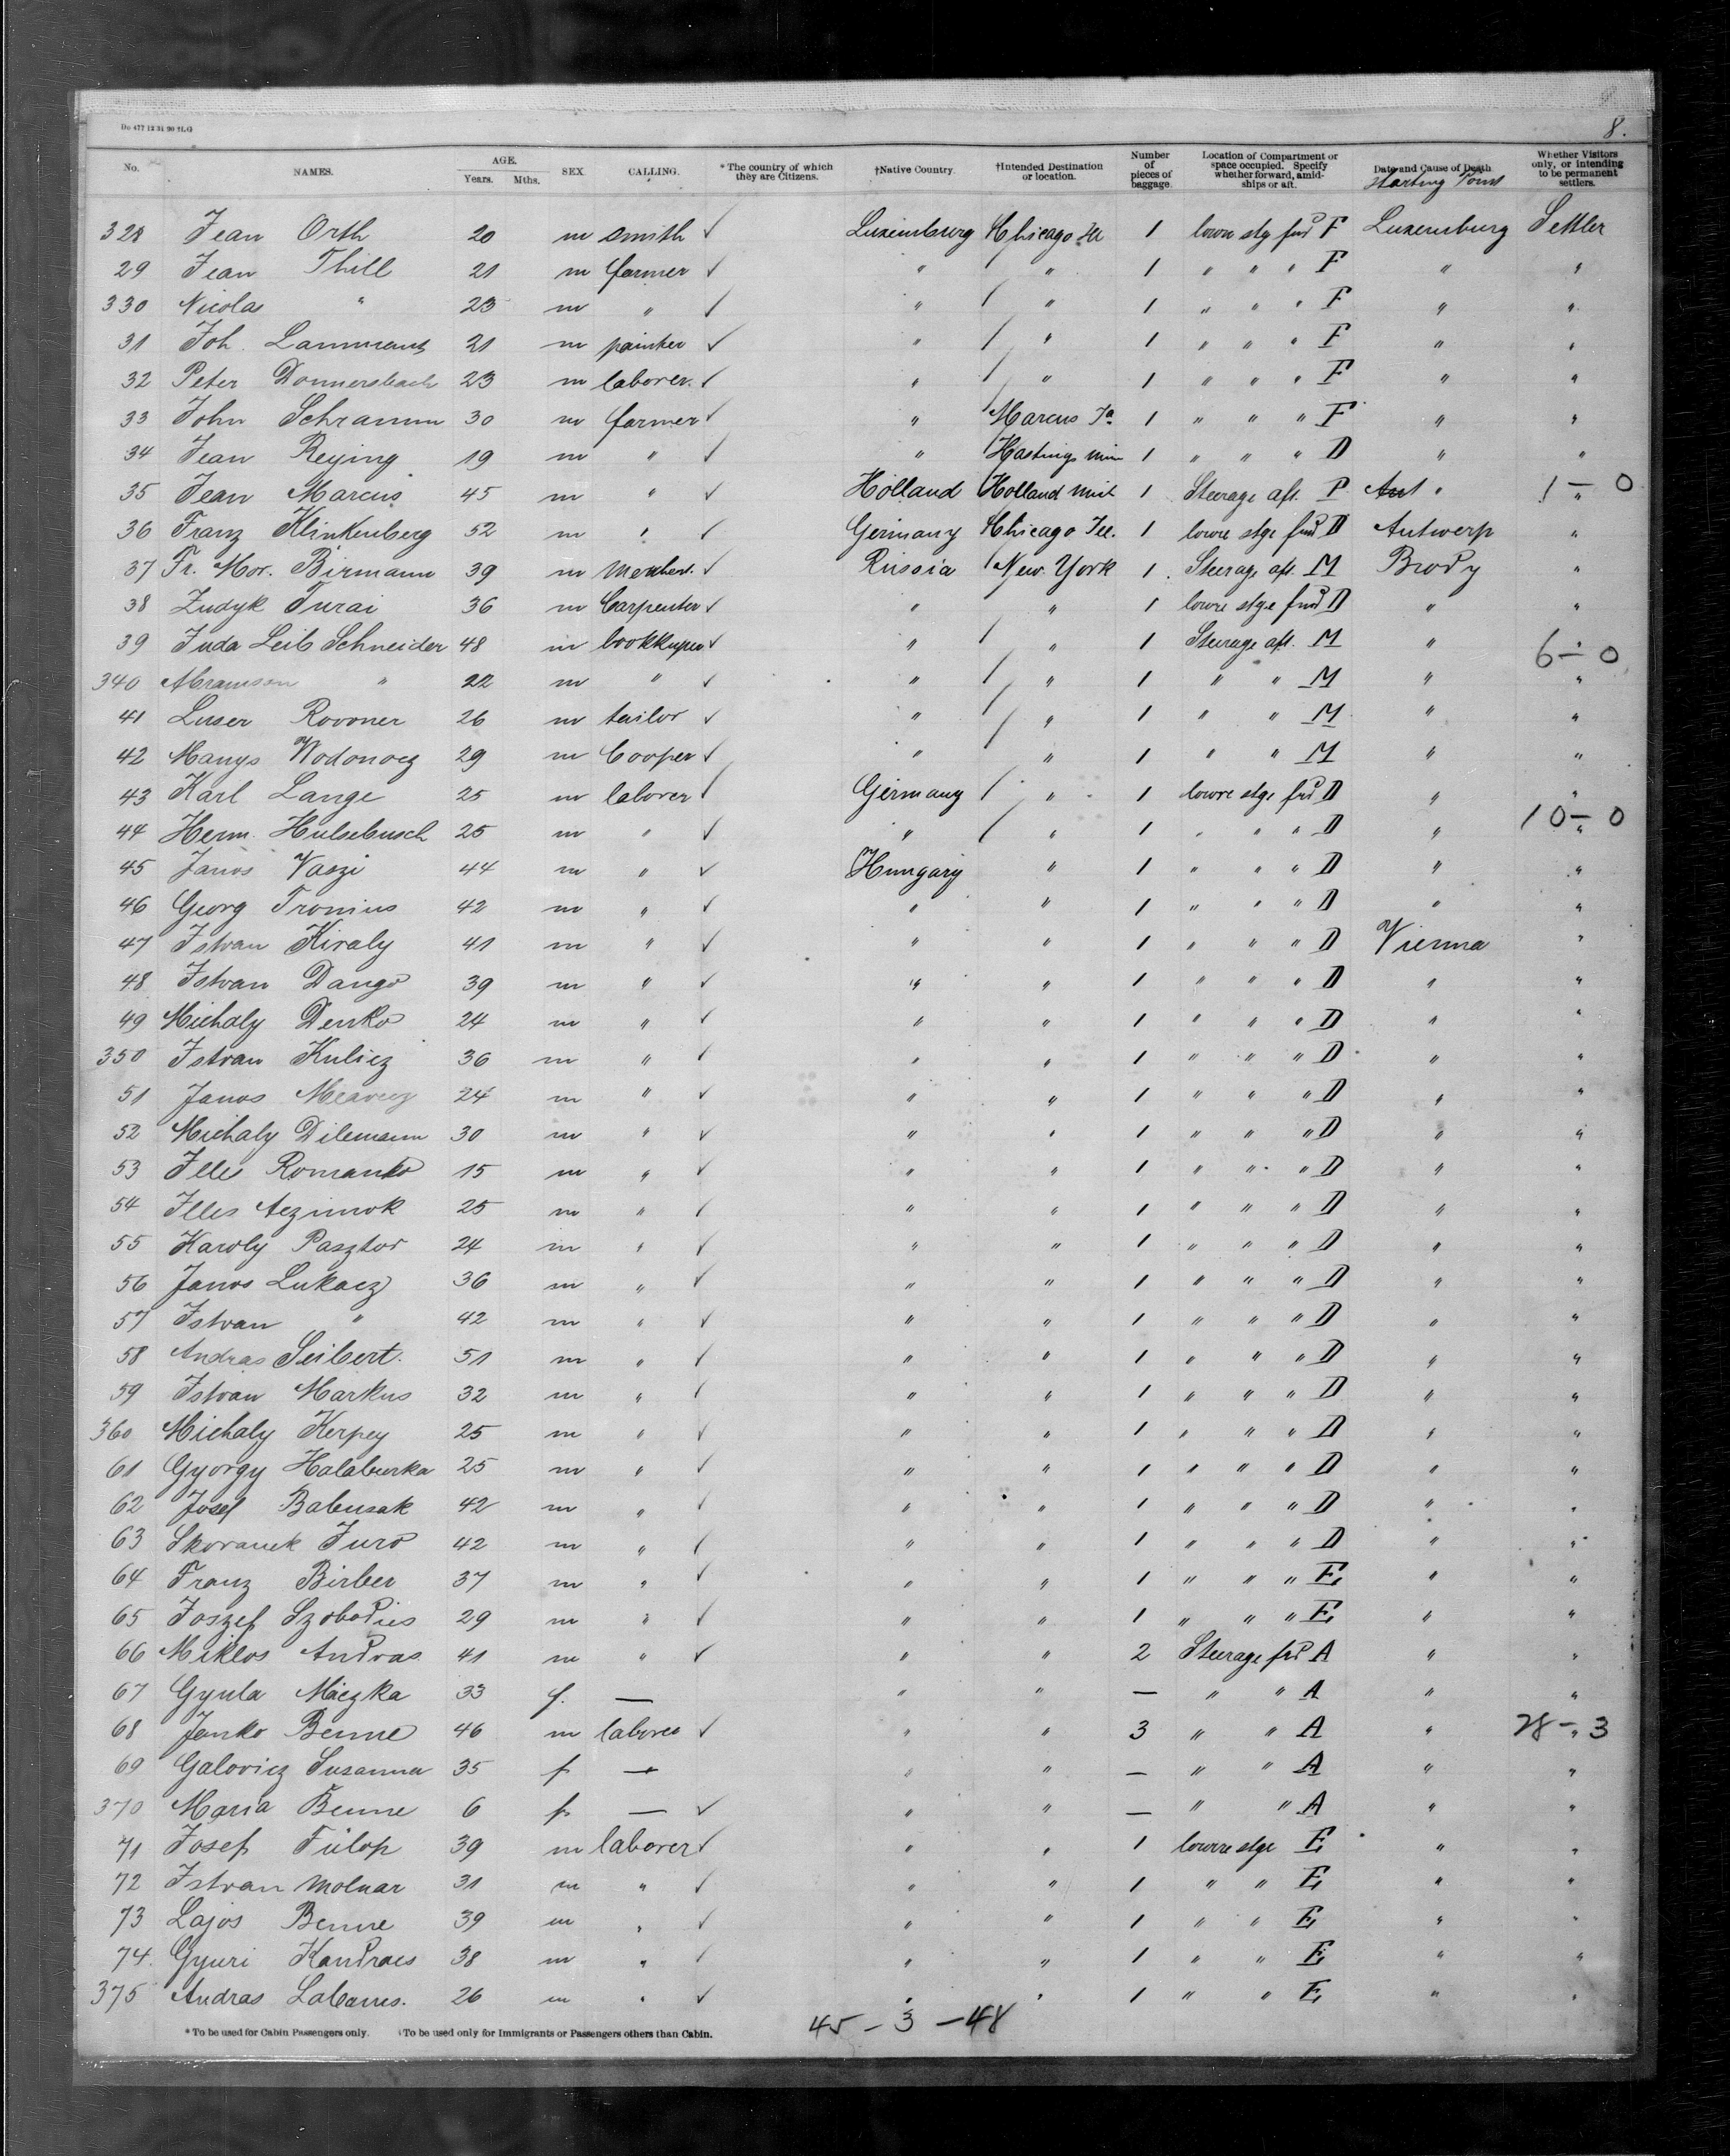 8.
No. NAMES. AGE. Years. Mths. SEX. CALLING. *The country of which they are Citizens. †Native Country. †Intended Destination or location. Number of pieces of baggage. Location of Compartment or space occupied. Specify whether forward, amidships or aft. Date and Cause of Death Starting Point Whether Visitors only, or intending to be permanent settlers.
328 Jean Orth 20 m smith ✓ Luxemburg Chicago Ill 1 lowre stg fwd F Luxemburg Settler
29 Jean Thill 21 m farmer ✓ " " 1 " " " F " "
330 Nicolas " 23 m " ✓ " " 1 " " " F " "
31 Joh. 21 m painter ✓ " " 1 " " " F " "
32 Peter Donnersbach 23 m laborer ✓ " " 1 " " " F " "
33 John Schramm 30 m farmer ✓ " Marcus Ja 1 " " " F " "
34 Jean Reying 19 m " ✓ " Hastings Min 1 " " " D " "
35 Jean Marcus 45 m " ✓ Holland Holland Mich 1 Steerage aft. P Ant " 1 - 0 "
36 Franz Klinkenberg 52 m " ✓ Germany Chicago Ill. 1 lowre stge fwd D Antwerp "
37 Fr. Mor. Birmann 39 m ✓ Russia New York 1 Steerage aft. M Brody "
38 Zudyk Turai 36 m Carpenter ✓ " " 1 lowre stge fwd D " "
39 Juda Leib Schneider 48 m bookkeper ✓ " " 1 Steerage aft. M " 6 - 0 "
340 " 22 m " ✓ " " 1 " " M " "
41 Luser Rovoner 26 m tailor ✓ " " 1 " " M " "
42 Manys Wodonocz 29 m Cooper ✓ " " 1 " " M " "
43 Karl Lange 25 m laborer ✓ Germany " 1 lowre stge fwd D " "
44 Herm. Hulsebusch 25 m " ✓ " " 1 " " " D " 10 - 0 "
45 Janos Vaszi 44 m " ✓ Hungary " 1 " " " D " "
46 Georg Tronius 42 m " ✓ " " 1 " " " D " "
47 Istvan Kiraly 41 m " ✓ " " 1 " " " D Vienna "
48 Istvan Dango 39 m " ✓ " " 1 " " " D " "
49 Michaly Denko 24 m " ✓ " " 1 " " " D " "
350 Istvan Kulicz 36 m " ✓ " " 1 " " " D " "
51 Janos 24 m " ✓ " " 1 " " " D " "
52 Michaly Dilemann 30 m " ✓ " " 1 " " " D " "
53 Illes Romanko 15 m " ✓ " " 1 " " " D " "
54 Illes 25 m " ✓ " " 1 " " " D " "
55 Karoly Pasztor 24 m " ✓ " " 1 " " " D " "
56 Janos Lukacz 36 m " ✓ " " 1 " " " D " "
57 Istvan " 42 m " ✓ " " 1 " " " D " "
58 Andras Seibert. 51 m " ✓ " " 1 " " " D " "
59 Istvan Markus 32 m " ✓ " " 1 " " " D " "
360 Michaly Kerpey 25 m " ✓ " " 1 " " " D " "
61 Gyorgy Halaburka 25 m " ✓ " " 1 " " " D " "
62 Josef Babusak 42 m " ✓ " " 1 " " " D " "
63 Skovanek Juro 42 m " ✓ " " 1 " " " D " "
64 Franz Birber 37 m " ✓ " " 1 " " " E " "
65 Joszef 29 m " ✓ " " 1 " " " E " "
66 Miklos Andras 41 m " ✓ " " 2 Steerage fwd A " "
67 Gyula Maczka 33 f. — " " — " " A " "
68 Janko Benne 46 m laborer ✓ " " 3 " " A " 28 - 3 "
69 Galovicz Susanna 35 f — " " — " " A " "
370 Maria Benne 6 f — ✓ " " — " " A " "
71 Josef Fülop 39 m laborer ✓ " " 1 lowre stge E " "
72 Istvan Molnar 31 m " ✓ " " 1 " " E " "
73 Lajos Benne 39 m " ✓ " " 1 " " E " "
74. Gyuri Kandracs 38 m " ✓ " " 1 " " E " "
375 Andras Labanes. 26 m " ✓ " " 1 " " E " "
*To be used for Cabin Passengers only. †To be used only for Immigrants or Passengers others than Cabin. 45 - 3 - 48